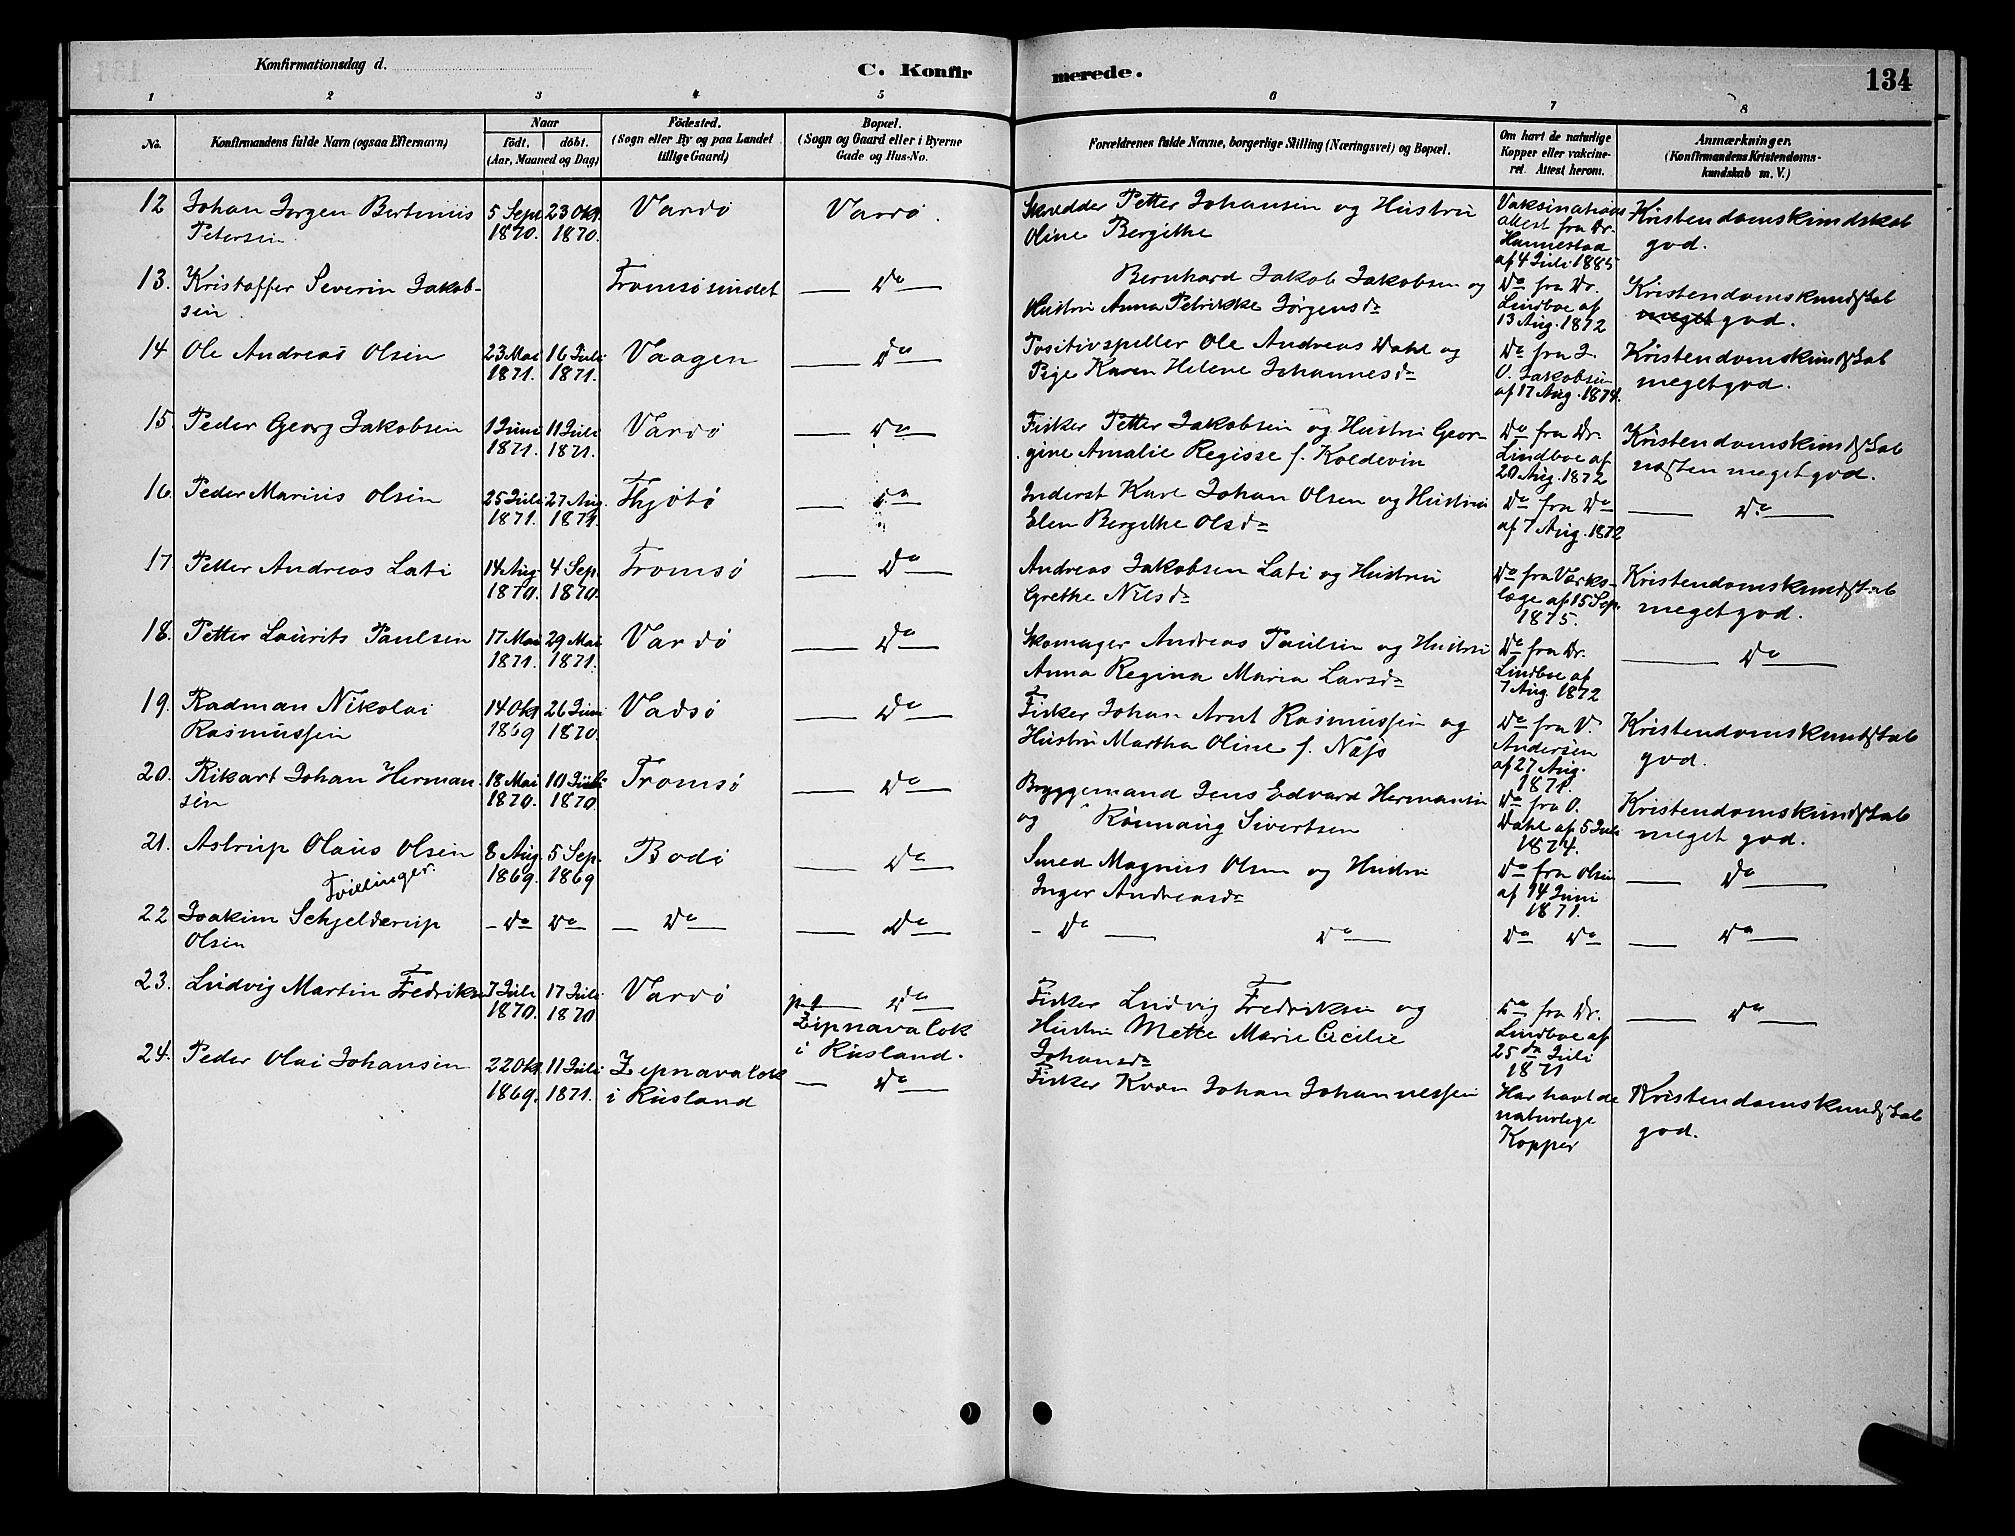 Konfirmationsdag d.
C. Konfirmerede.
134
1 2 3 4 5 6 7 8
No.
Konfirmandens fulde Navn (ogsaa Efternavn)
Naar
födt. döbt.
(Aar, Maaned og Dag)
Födested.
(Sogn eller By og paa Landet
tillige Gaard)
Bopæl.
(Sogn og Gaard eller i Byerne
Gade og Hus-No.
Forældrenes fulde Navne, borgerlige Stilling (Næringsvei) og Bopæl.
Om havt de naturlige
Kopper eller vakcine-
ret. Attest herom.
Anmærkninger.
(Konfirmandens Kristendoms-
kundskab m. V.)
12 Johan Jørgen Bertinius 5 Sept 23 Okt. Vardø Vardø. Skredder Petter Johansen og Hustru Vaksinations Kristendomskundskab
Petersen. 1870. 1870. Oline Bergithe attest fra Dr. god.
Hannestad
af 4 Juli 1885
13. Kristoffer Severin Jakob- Tromsøsundet — Do — Bernhard Jakob Jakobsen og Do fra Dr. Kristendomskundskab
sen. Hustru Anna Petrikke Jørgensdr Lindboe af meget god.
13 Aug. 1872
14 Ole Andreas Olsen 23 Mai 16 Juli Vaagen — Do — Positivspiller Ole Andreas Dahl og Do fra J. Kristendomskundskab
1871. 1871. Pige Karen Helene Johannesdr O. Jakobsen meget god.
af 17 Aug. 1874.
15. Peder Georg Jakobsen 1 Juni 11 Juli Vardø — Do — Fisker Petter Jakobsen og Hustru Geor- Do fra Dr. Kristendomskundskab
1871. 1871. gine Amalie Regisse f. Koldevin Lindboe af næsten meget god.
20 Aug. 1872
16. Peder Marius Olsen 25 Juli 27 Aug. Thjøtø — Do — Inderst Karl Johan Olsen og Hustru Do fra Do — Do —
1871. 1871. Elen Bergithe Olsdr af 7 Aug. 1872
17 Petter Andreas Lati 14 Aug. 4 Sep. Tromsø — Do — Andreas Jakobsen Lati og Hustru Do fra Værks- Kristendomskundskab
1870. 1870. Grethe Nilsdr læge af 15 Sep. meget god.
1875.
18. Petter Laurits Paulsen 17 Mai 29 Mai Vardø — Do — Skomager Andreas Paulsen og Hustru Do fra Dr. — Do —
1871. 1871. Anna Regina Maria Larsdr Lindboe af
7 Aug. 1872
19. Radman Nikolai 14 Okt 26 Juni Vadsø — Do — Fisker Johan Arnt Rasmussen og Do fra O. Kristendomskundskab
Rasmussen 1869 1870. Hustru Martha Oline f. Næss Andersen god.
af 27 Aug.
1871.
20. Rikart Johan Herman- 18 Mai 10 Juli Tromsø — Do — Bryggemand Jens Edvard Hermansen Do fra O. Kristendomskundskab
sen 1870. 1870 og Rønnaug Sivertsen Dahl af 5 Juli meget god.
1874.
21. Astrup Olaus Olsen 8 Aug. 5 Sep. Bodø — Do — Smed Magnus Olsen og Hustru Do fra Olsen — Do —
Tvillinger. 1869. 1869 Inger Andreasdr af 14 Juni
1871.
22 Joakim Schjelderup — Do Do — Do — — Do — — Do — Do — Do Do — Do —
Olsen
23. Ludvig Martin Fredriksen 7 Juli 17 Juli Vardø p.t — Do — Fisker Ludvig Fredriksen og Do fra Dr. — Do —
1870. 1870 Zipnavalok Hustru Mette Marie Cicilie Lindboe af
i Rusland. Johansdr 25de Juli
1871
24. Peder Olai Johansen 22 Okt. 11 Juli Zipnavalok — Do — Fisker Kvæn Johan Johannessen Har havt de Kristendomskundskab
1869. 1871. i Rusland naturlige god.
Kopper